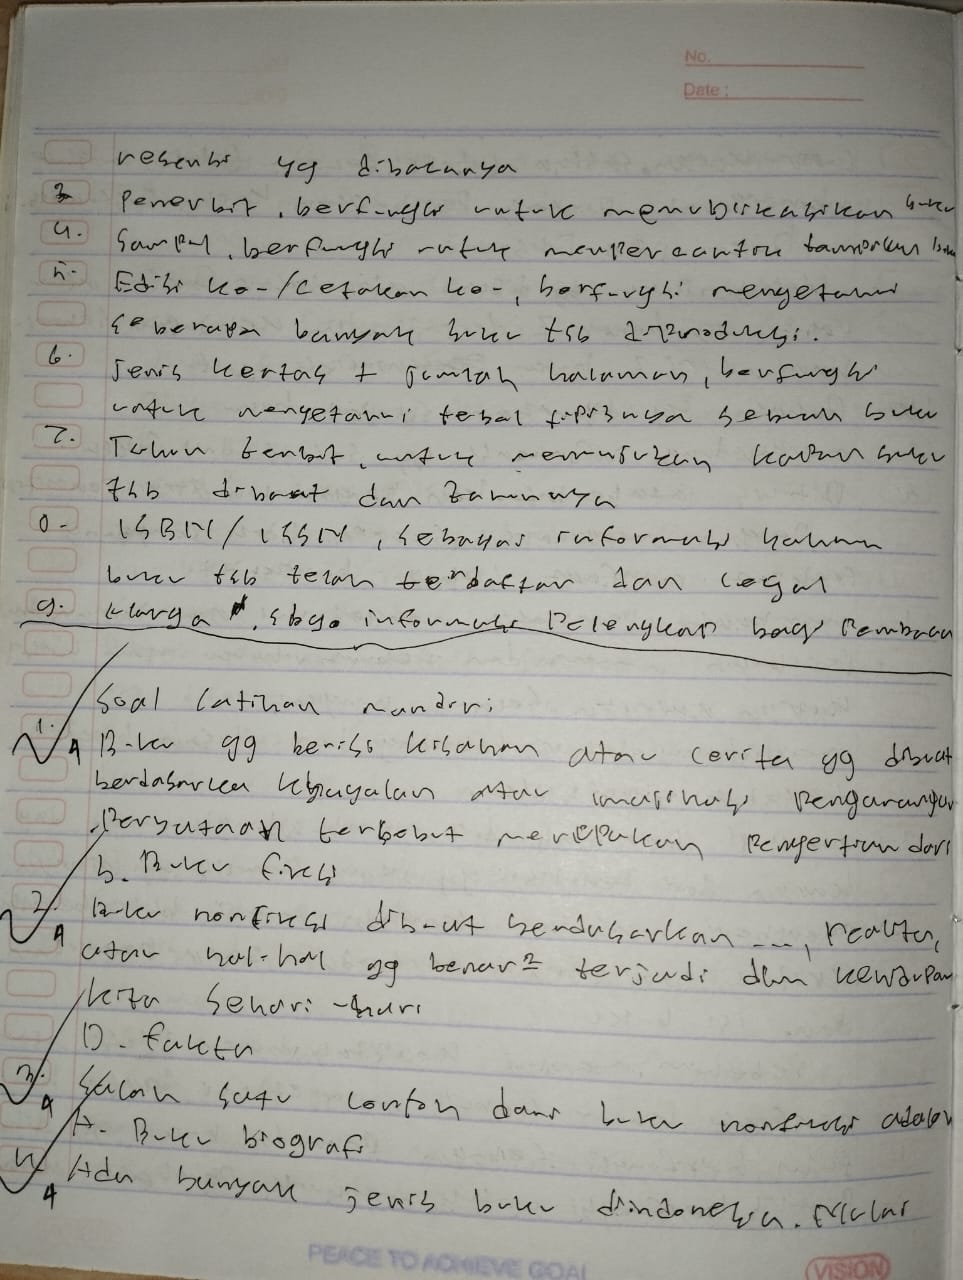 No.
Date :
resensi yg dibacanya
3. Penerbit, berfungsi untuk mempublikasikan buku
4. Sampul, berfungsi untuk mempercantik tampilan buku
5. Edisi ke-/cetakan ke-, berfungsi mengetahui
seberapa banyak buku tsb diproduksi.
6. Jenis kertas + jumlah halaman, berfungsi
untuk mengetahui tebal tipisnya sebuah buku
7. Tahun terbit, untuk memastikan kapan buku
tsb dibuat dan zamannya
8. ISBN/ISSN, sebagai informasi bahwa
buku tsb telah terdaftar dan legal
9. Harga, sbgo informasi pelengkap bagi pembaca
Soal latihan mandiri
1. Buku yg berisi kisahan atau cerita yg dibuat
4
berdasarkan khayalan atau imajinasi pengarangnya
Pernyataan tersebut merupakan pengertian dari
b. Buku fiksi
2. Buku nonfiksi dibuat berdasarkan ..., realita,
4
atau hal-hal yg benar2 terjadi dlm kehidupan
kita sehari-hari
D. fakta
3. Salah satu contoh dari buku nonfiksi adalah
4
A. Buku biografi
4. Ada banyak jenis buku diindonesia.
4
PEACE TO ACHIEVE GOAL
VISION